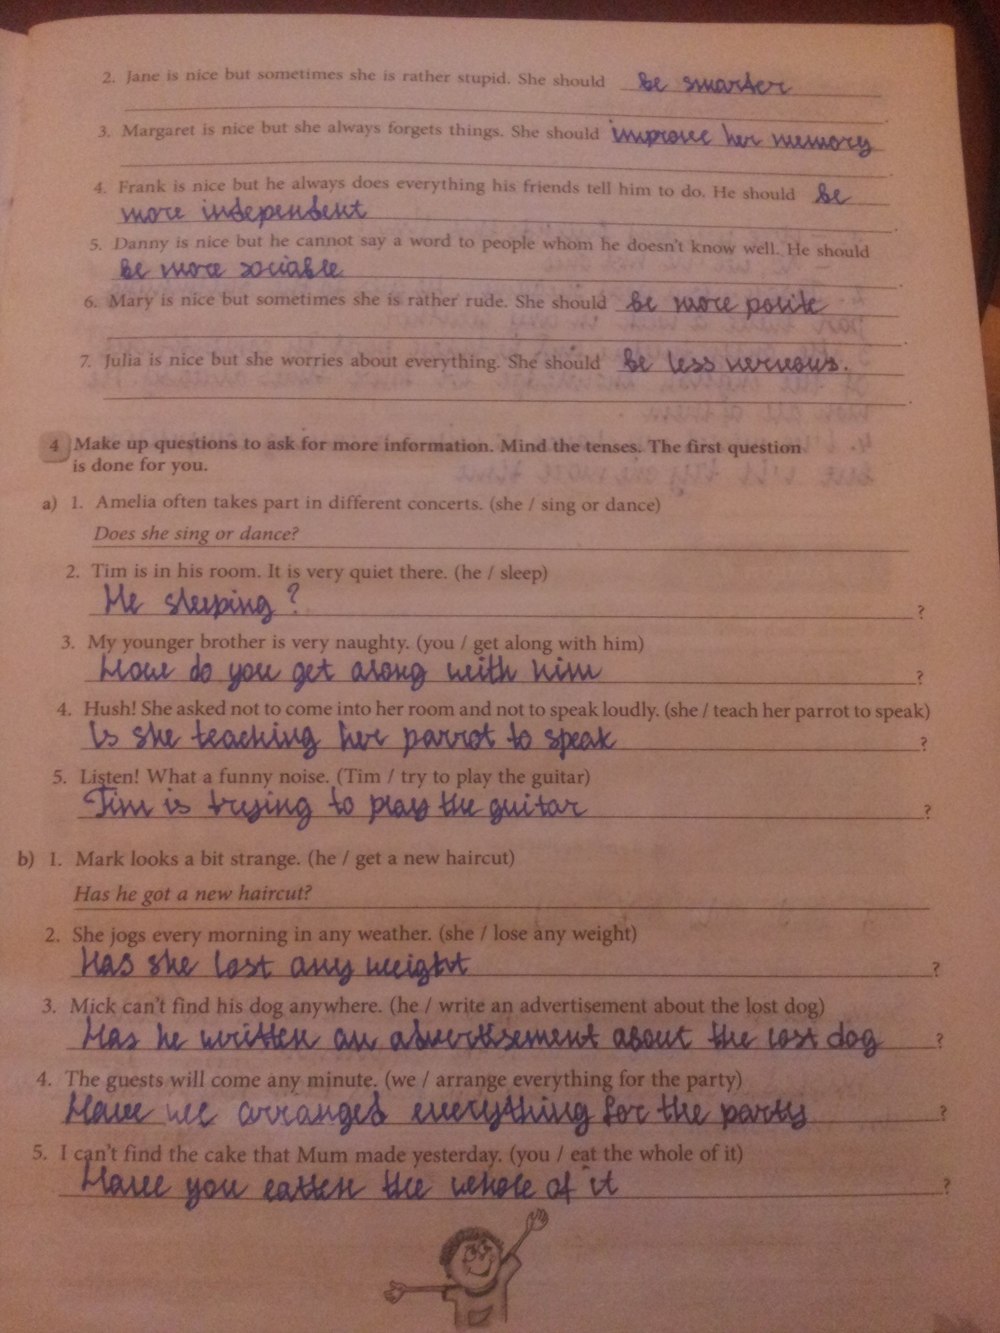 2. Jane is nice but sometimes she is rather stupid. She should be smarter
3. Margaret is nice but she always forgets things. She should improve her memory
4. Frank is nice but he always does everything his friends tell him to do. He should be
more independent
5. Danny is nice but he cannot say a word to people whom he doesn't know well. He should
be more sociable
6. Mary is nice but sometimes she is rather rude. She should be more polite
7. Julia is nice but she worries about everything. She should be less nerveous.
4 Make up questions to ask for more information. Mind the tenses. The first question
is done for you.
a) 1. Amelia often takes part in different concerts. (she / sing or dance)
Does she sing or dance?
2. Tim is in his room. It is very quiet there. (he / sleep)
He sleeping? ?
3. My younger brother is very naughty. (you / get along with him)
How do you get along with him ?
4. Hush! She asked not to come into her room and not to speak loudly. (she / teach her parrot to speak)
Is she teaching her parrot to speak ?
5. Listen! What a funny noise. (Tim / try to play the guitar)
Tim is trying to play the guitar ?
b) 1. Mark looks a bit strange. (he / get a new haircut)
Has he got a new haircut?
2. She jogs every morning in any weather. (she / lose any weight)
Has she lost any weight ?
3. Mick can't find his dog anywhere. (he / write an advertisement about the lost dog)
Has he written an advertisement about the lost dog ?
4. The guests will come any minute. (we / arrange everything for the party)
Have we arranged everything for the party ?
5. I can't find the cake that Mum made yesterday. (you / eat the whole of it)
Have you eatten the whole of it ?